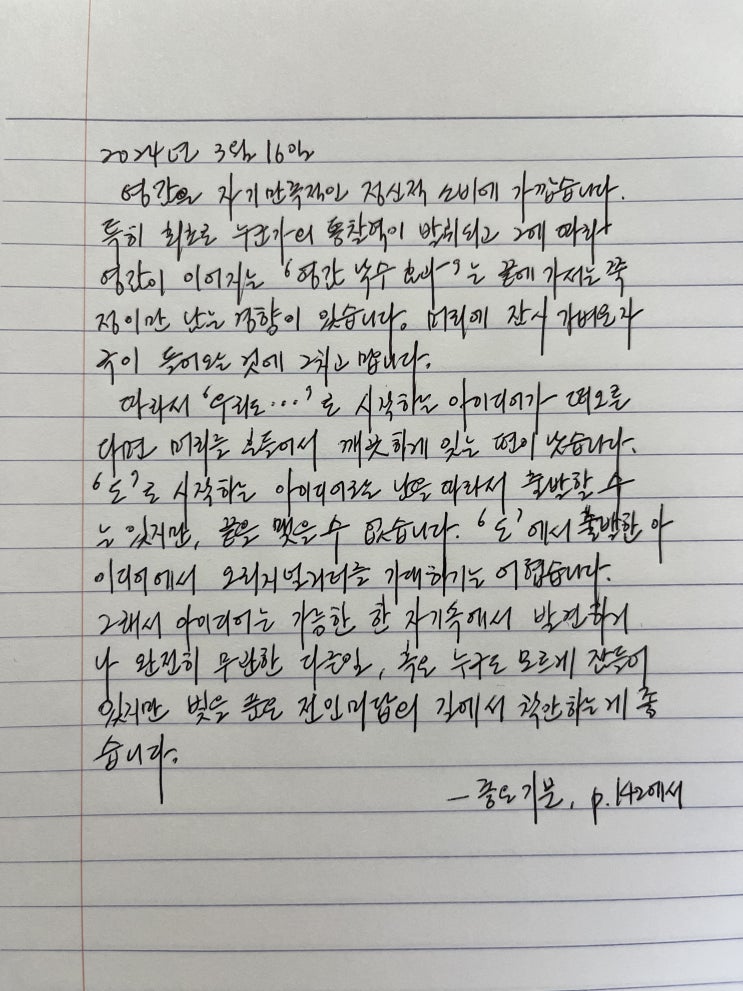 2024년 3월 16일
영감은 자기만족적인 정신적 소비에 가깝습니다.
특히 최초로 누군가의 통찰력이 발휘되고 그에 따라
영감이 이어지는 '영감 낙수 효과'는 끝에 가서는 쭉
정이만 남는 경향이 있습니다. 머리에 잠시 가벼운 자
극이 들어오는 것에 그치고 맙니다.
따라서 '우리도...'로 시작하는 아이디어가 떠오른
다면 머리를 흔들어서 깨끗하게 잊는 편이 낫습니다.
'도'로 시작하는 아이디어로는 남을 따라서 출발할 수
는 있지만, 끝을 맺을 수 없습니다. '도'에서 출발한 아
이디어에서 오리지널리티를 기대하기는 어렵습니다.
그래서 아이디어는 가능한 한 자기 속에서 발견하거
나 완전히 무관한 다른 일, 혹은 누구도 모르게 잠들어
있지만 빛을 품은 전인미답의 길에서 착안하는 게 좋
습니다.
- 좋은 기분, p.142에서